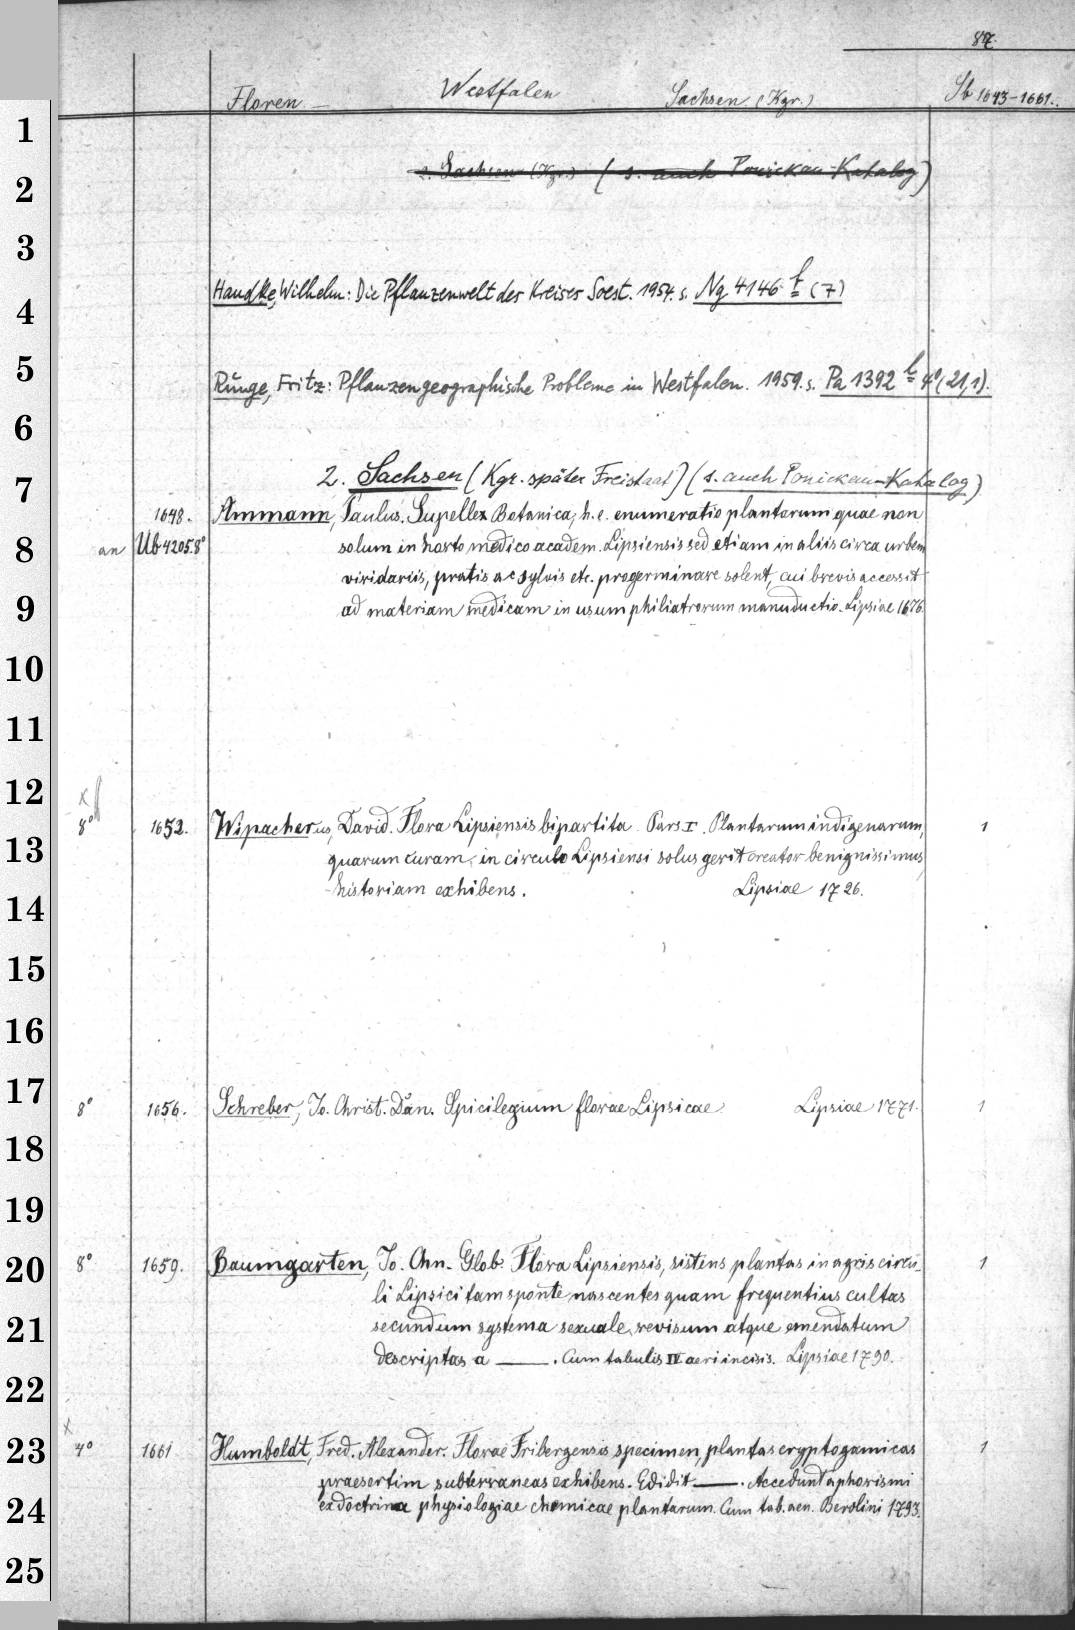 87.
Floren — Westfalen Sachsen (Kgr.) Sb 1643-1661.
1
2. Sachsen (Kgr.) (s. auch Ponickau-Katalog)
2
3
Handke, Wilhelm: Die Pflanzenwelt des Kreises Soest. 1954. s. Ng 4146 f (7)
4
5
Runge, Fritz: Pflanzengeographische Probleme in Westfalen. 1959. s. Pa 1392 l 4° (21,1).
6
2. Sachsen (Kgr. später Freistaat) (s. auch Ponickau-Katalog)
7
1648. Ammann, Paulus. Supellex Botanica, h. e. enumeratio plantarum quae non
8 an Ub 4205 8° solum in horto medico academ. Lipsiensis sed etiam in aliis circa urbem
viridariis, pratis ac sylvis etc. progerminare solent, cui brevis accessit
9 ad materiam medicam in usum philiatrorum manuductio. Lipsiae 1676.
10
11
12
x
8° 1652. Wipacherus, David. Flora Lipsiensis bipartita. Pars I. Plantarum indigenarum, 1
13 quarum curam, in circulo Lipsiensi solus gerit creator benignissimus,
historiam exhibens. Lipsiae 1726.
14
15
16
17
8° 1656. Schreber, Jo. Christ. Dan. Spicilegium florae Lipsicae. Lipsiae 1771. 1
18
19
20 8° 1659. Baumgarten, Jo. Chn. Glob. Flora Lipsiensis, sistens plantas in agris circu- 1
li Lipsici tam sponte nascentes quam frequentius cultas
21 secundum systema sexuale, revisum atque emendatum
descriptas a ——. Cum tabulis IV aeri incisis. Lipsiae 1790.
22
x
23 4° 1661 Humboldt, Fred. Alexander. Florae Fribergensis specimen, plantas cryptogamicas 1
praesertim subterraneas exhibens. Edidit ——. Accedunt aphorismi
24 ex doctrina physiologiae chemicae plantarum. Cum tab. aen. Berolini 1793.
25